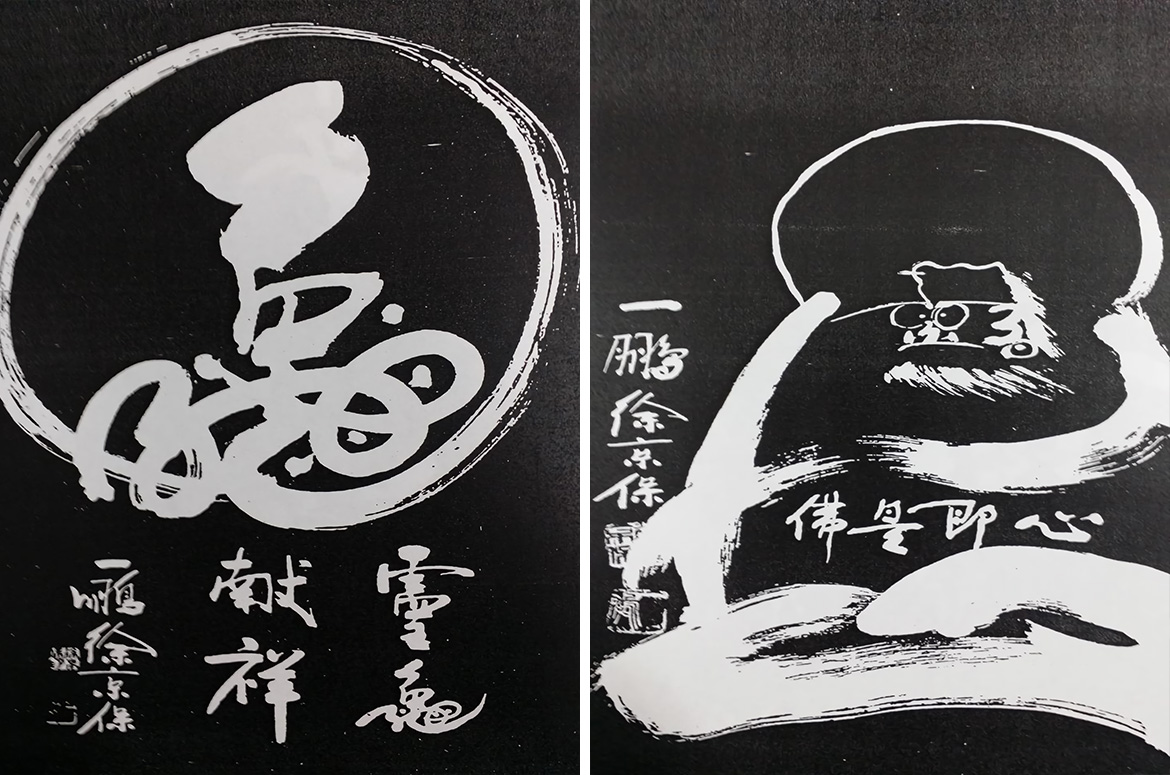 靈龜
献祥
一鵬徐京保
心即是佛
一鵬徐京保